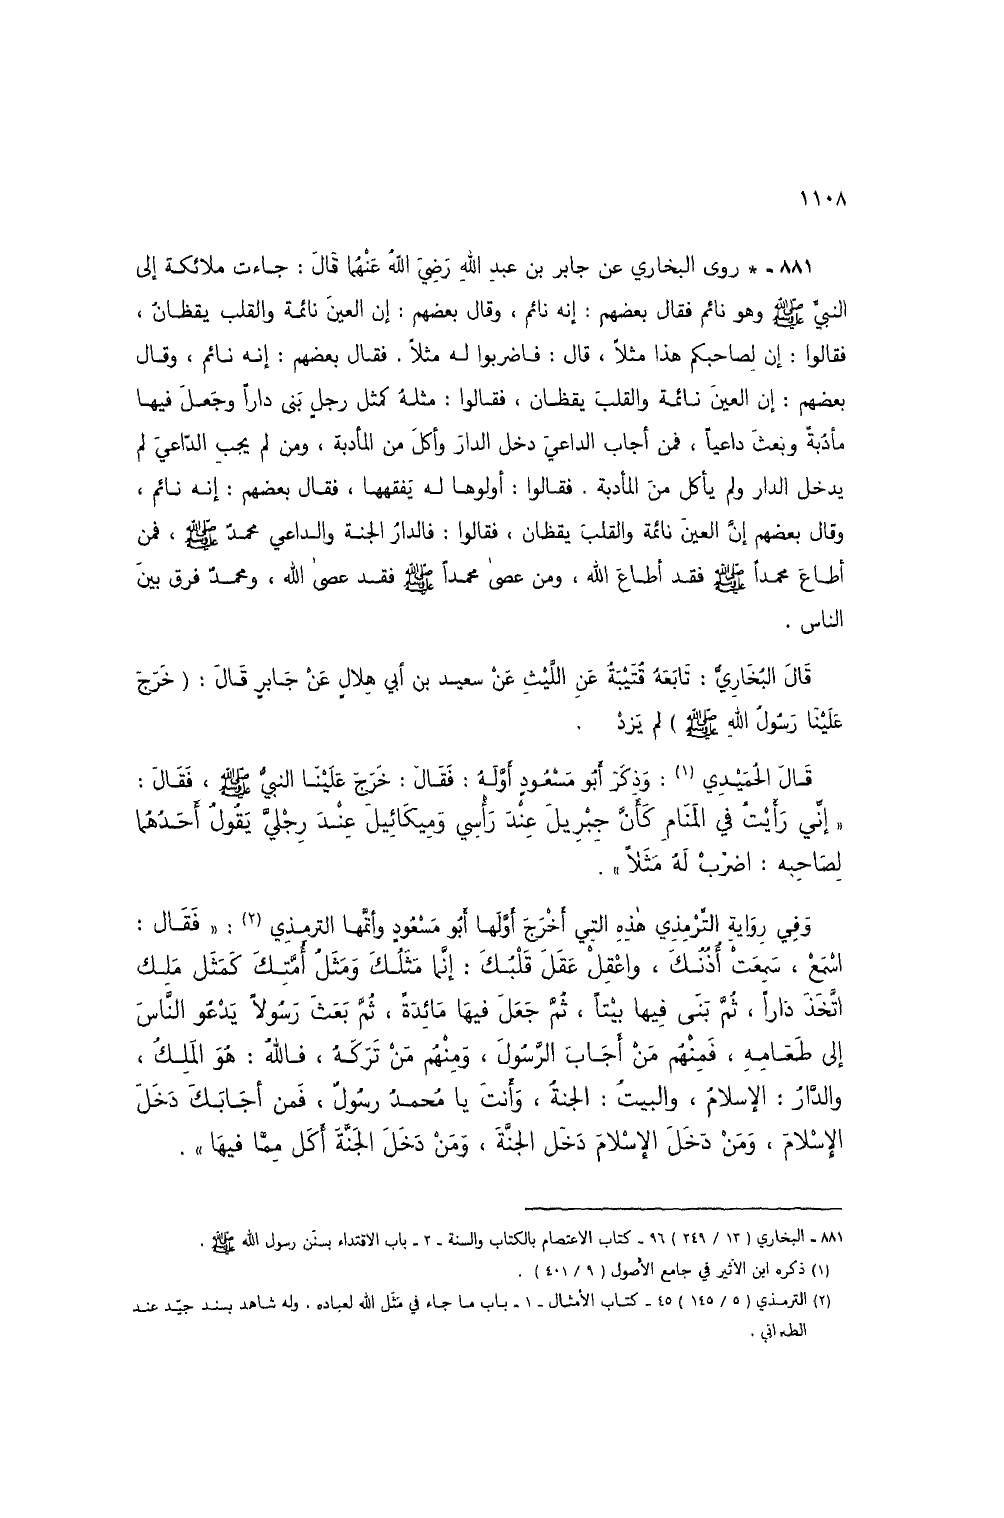 ١١٠٨
٨٨١ - * روى البخاري عن جابر بن عبدِ اللهِ رَضِيَ اللَّهُ عَنْهُمَا قَالَ : جاءت ملائكة إلى
النبيِّ ﷺ وهو نائم فقال بعضهم : إنه نائم ، وقال بعضهم : إن العينَ نائمة والقلب يقظانُ ،
فقالوا : إن لصاحبكم هذا مثلاً ، قال : فاضربوا له مثلاً . فقال بعضهم : إنه نائم ، وقال
بعضهم : إن العينَ نائمة والقلبَ يقظان ، فقالوا : مثلهُ كمثل رجلٍ بَنى داراً وجَعلَ فيها
مأدبةً وبَعثَ داعياً ، فمن أجاب الداعيَ دخل الدارَ وأكلَ من المأدبة ، ومن لم يجبِ الدّاعيَ لم
يدخل الدار ولم يأكل منَ المأدبة . فقالوا : أولوها له يَفقهها ، فقال بعضهم : إنه نائم ،
وقال بعضهم إنَّ العينَ نائمة والقلبَ يقظان ، فقالوا : فالدارُ الجنة والداعي محمدٌ ﷺ ، فمن
أطاعَ محمداً ﷺ فقد أطاعَ الله ، ومن عصىٰ محمداً ﷺ فقد عصىٰ الله ، ومحمدٌ فرق بينَ
الناس .
قَالَ البُخَارِيُّ : تَابَعَهُ قُتَيْبَةُ عَنِ اللَّيْثِ عَنْ سعيد بن أبي هِلالٍ عَنْ جَابرٍ قَالَ : ( خَرَجَ
عَلَيْنَا رَسُولُ اللهِ ﷺ ) لم يَزدْ .
قَالَ الحُمَيْدِي (١) : وَذِكَرَ أَبُو مَسْعُودٍ أَوَّلَهُ : فَقَالَ : خَرَجَ عَلَيْنَا النبيُّ ﷺ ، فَقَالَ :
« إنِّي رَأَيْتُ في المَنَام كَأَنَّ جِبْرِيلَ عِنْدَ رَأْسِي وَمِيكَائِيلَ عِنْدَ رِجْلَيَّ يَقُولُ أَحَدُهُمَا
لِصَاحِبِه : اضرْبْ لَهُ مَثَلاً » .
وَفِي رِوَايَةِ التِّرْمِذي هٰذِهِ التِي أَخْرَجَ أَوَّلَهَا أَبُو مَسْعُودٍ وأتمَّها الترمذي (٢) : « فَقَال :
اسْمَعْ ، سَمِعَتْ أُذُنُكَ ، واعْقِلْ عَقَلَ قَلْبُكَ : إنَّمَا مَثَلُكَ وَمَثَلُ أُمَّتِكَ كَمَثَلِ مَلِكٍ
اتَّخَذَ دَاراً ، ثُمَّ بَنَى فِيها بيْتاً ، ثُمَّ جَعَلَ فيهَا مَائِدَةً ، ثُمَّ بَعَثَ رَسُولاً يَدْعُو النَّاسَ
إلى طَعَامِهِ ، فَمِنْهُم مَنْ أَجَابَ الرَّسُولَ ، وَمِنْهُم مَنْ تَرَكَهُ ، فاللهُ : هُوَ المَلِكُ ،
والدَّارُ : الإسلامُ ، والبيتُ : الجنةُ ، وَأَنتَ يا مُحمدُ رسُولٌ ، فَمن أجَابَكَ دَخَلَ
الإسْلامَ ، وَمَنْ دَخَلَ الإسْلامَ دَخَل الجنَّةَ ، وَمَنْ دَخَلَ الجَنَّةَ أَكَل مِمَّا فيهَا » .
٨٨١ - البخاري ( ١٣ / ٢٤٩ ) ٩٦ - كتاب الاعتصام بالكتاب والسنة - ٢ - باب الاقتداء بسنن رسول الله ﷺ .
(١) ذكره ابن الأثير في جامع الأصول ( ٩ / ٤٠١ ) .
(٢) الترمذي ( ٥ / ١٤٥ ) ٤٥ - كتاب الأمثال - ١ - باب ما جاء في مَثَل الله لعباده . وله شاهد بسند جيّد عند
الطبراني .